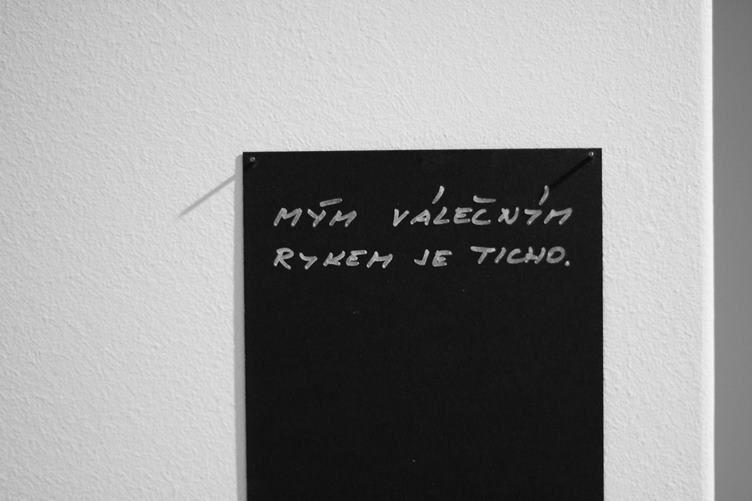 MÝM VÁLEČNÝM
RYKEM JE TICHO.